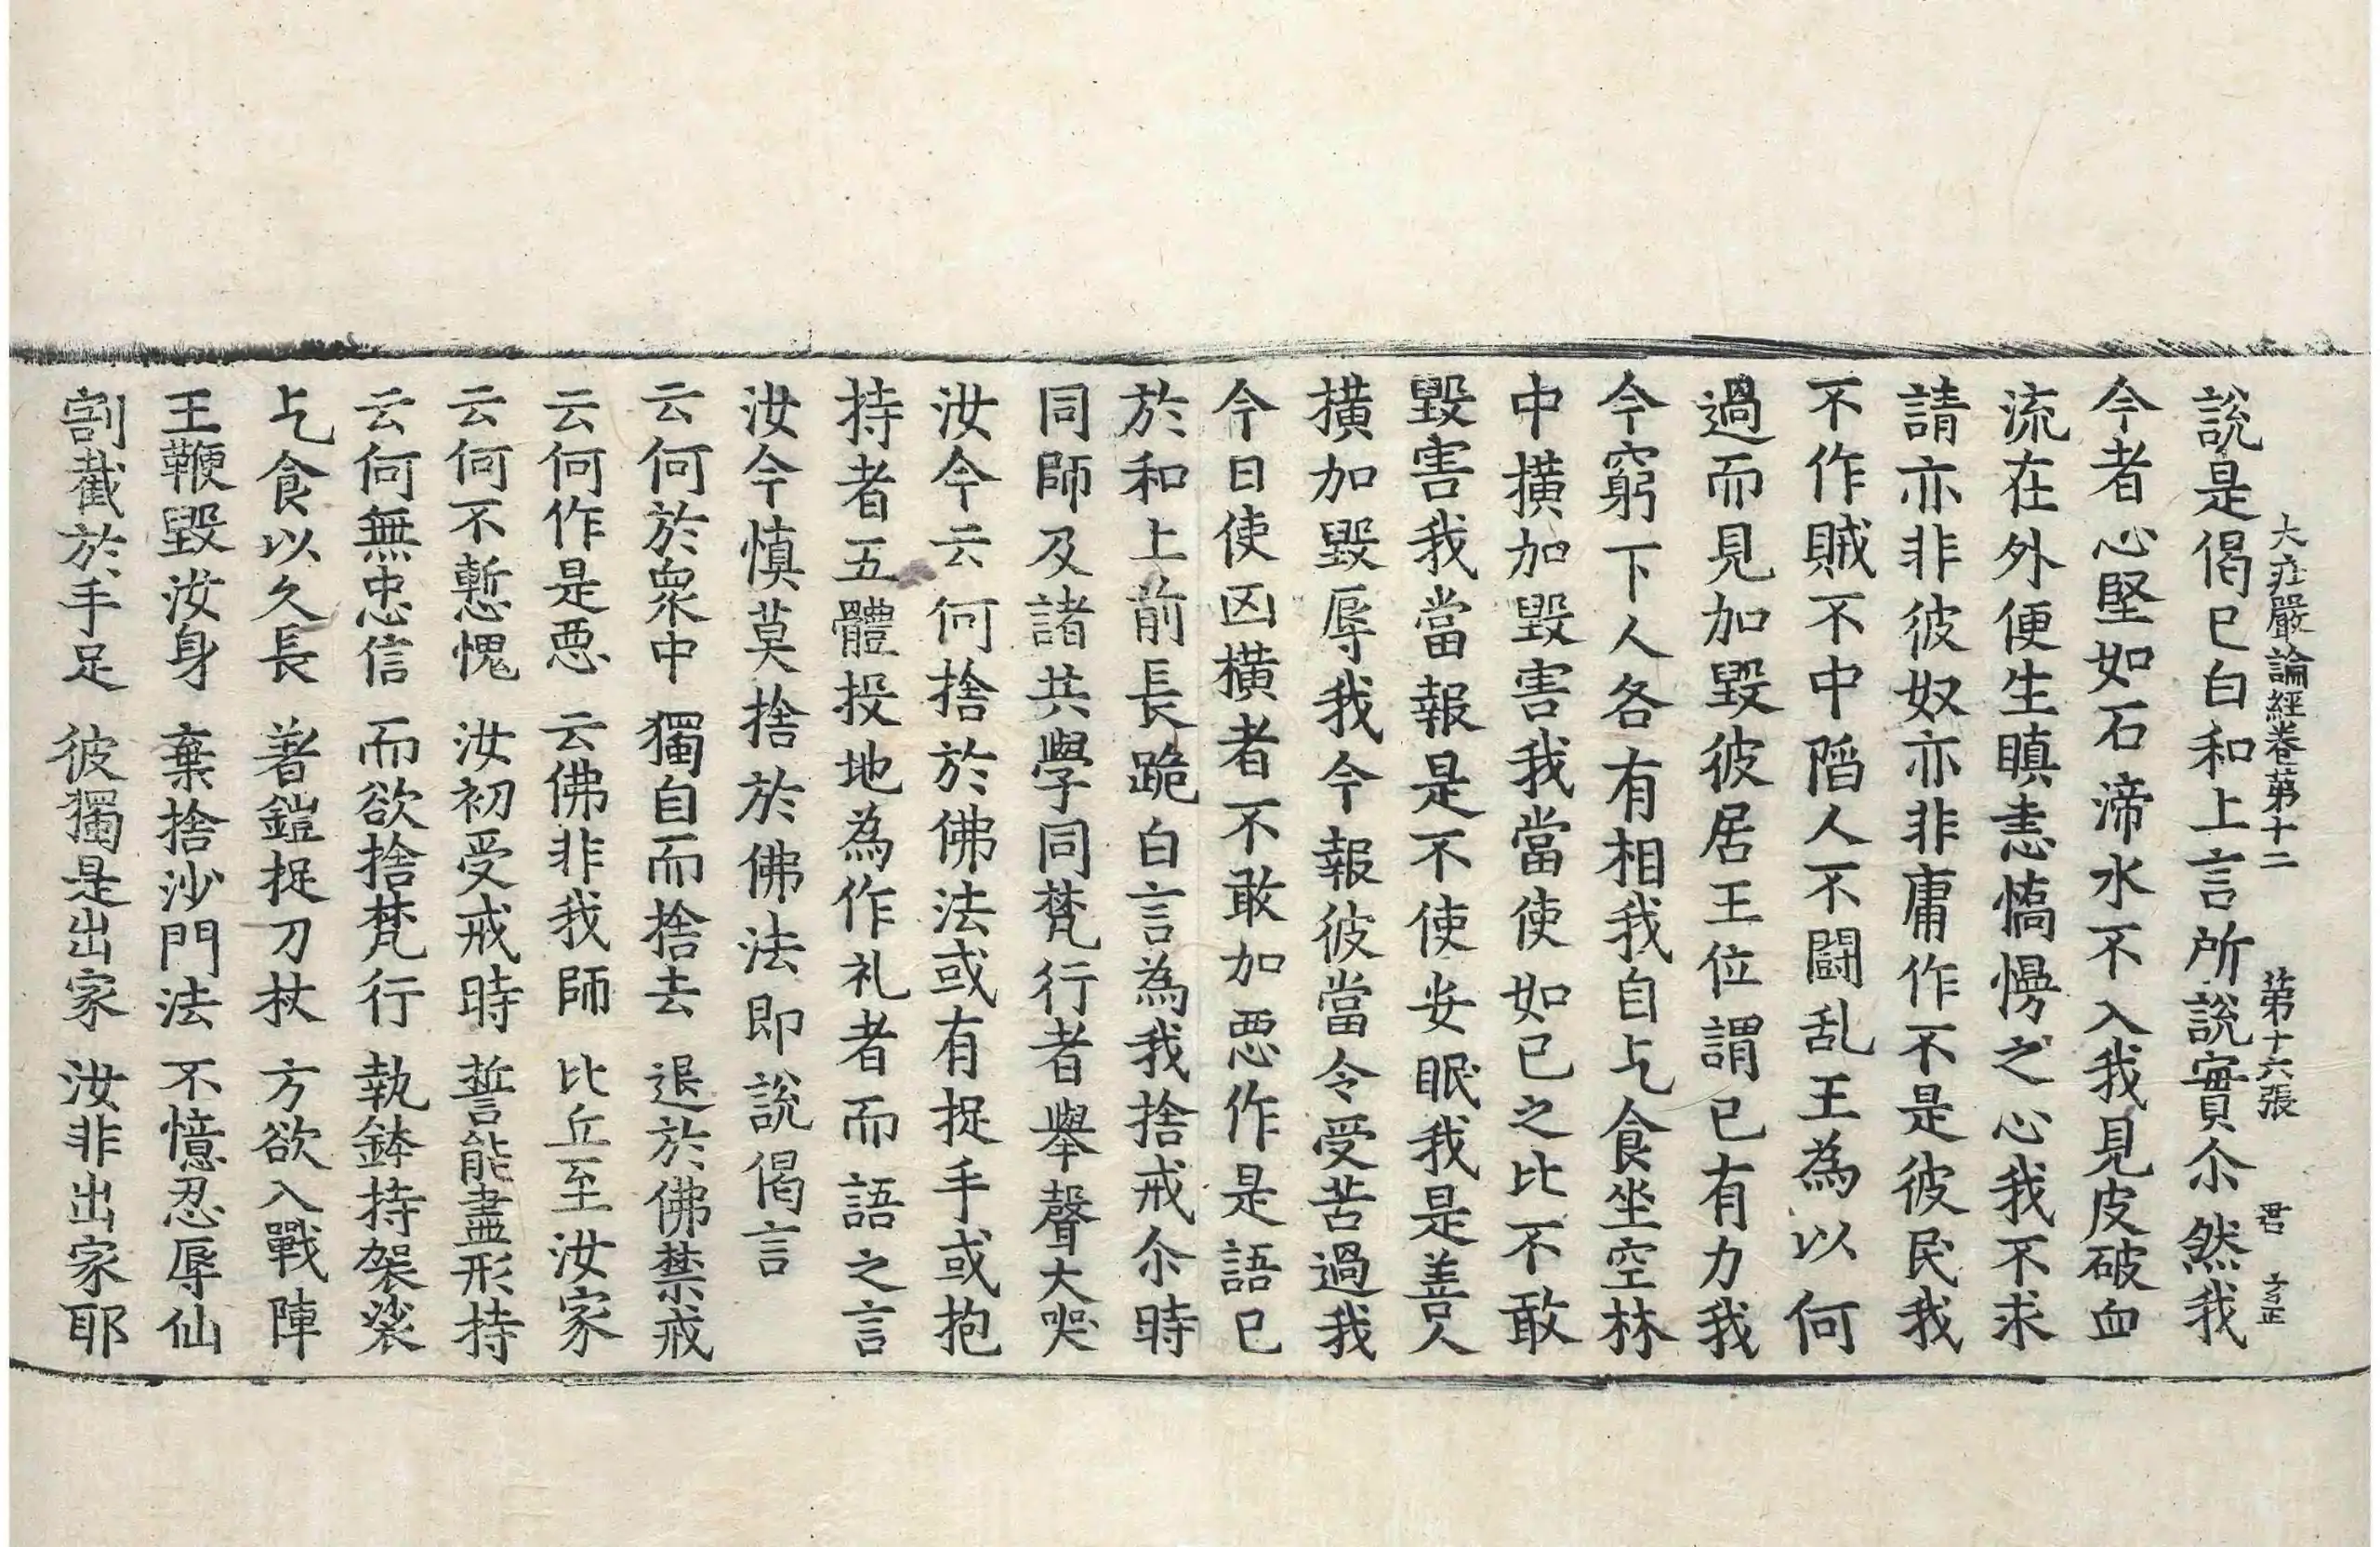 大庄嚴論經卷苐十二　苐十六張　君　方正
說是偈已白和上言所說實尒然我
今者心堅如石渧水不入我見皮破血
流在外便生瞋恚憍慢之心我不求
請亦非彼奴亦非庸作不是彼民我
不作賊不中陷人不鬪乱王為以何
過而見加毀彼居王位謂已有力我
今窮下人各有相我自乞食坐空林
中橫加毀害我當使如已之比不敢
毀害我當報是不使安眠我是善人
橫加毀辱我今報彼當令受苦過我
今日使凶橫者不敢加惡作是語已
於和上前長跪白言為我捨戒尒時
同師及諸共學同梵行者舉聲大哭
汝今云何捨於佛法或有捉手或抱
持者五體投地為作礼者而語之言
汝今慎莫捨於佛法即說偈言
云何於衆中　獨自而捨去　退於佛禁戒
云何作是惡　云佛非我師　比丘至汝家
云何不慙愧　汝初受戒時　誓能盡形持
云何無忠信　而欲捨梵行　執鉢持袈裟
乞食以久長　著鎧捉刀杖　方欲入戰陣
王鞭毀汝身　棄捨沙門法　不憶忍辱仙
割截於手足　彼獨是出家　汝非出家耶